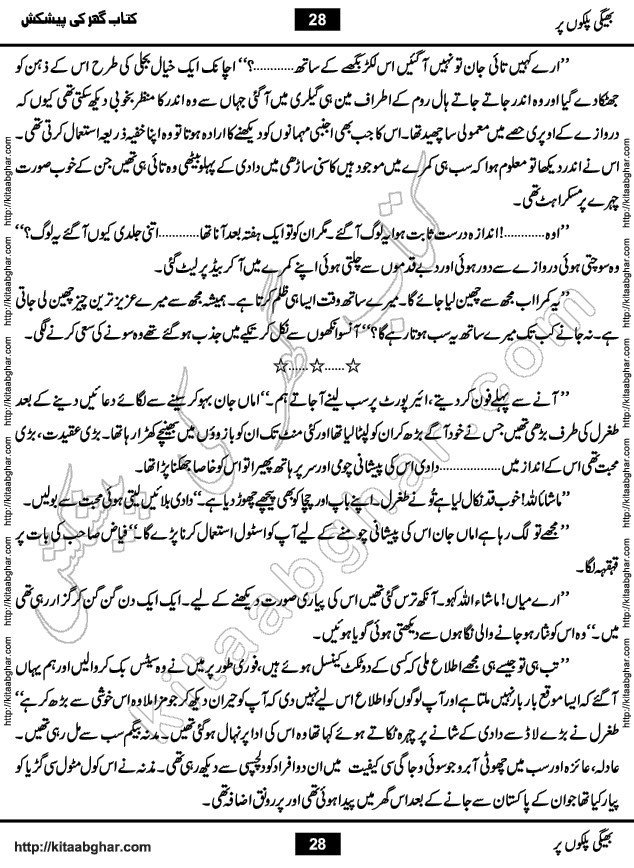 کتاب گھر کی پیشکش 28 بھیگی پلکوں پر
’’ارے کہیں تائی جان تو نہیں آ گئیں اس لکڑ بگھے کے ساتھ............؟‘‘ اچانک ایک خیال بجلی کی طرح اس کے ذہن کو
جھٹکا دے گیا اور وہ اندر جاتے جاتے ہال روم کے اطراف مین ہی گیلری میں آ گئی جہاں سے وہ اندر کا منظر بخوبی دیکھ سکتی تھی کیوں کہ
دروازے کے اوپری حصے میں معمولی سا چھید تھا۔ اس کا جب بھی اجنبی مہمانوں کو دیکھنے کا ارادہ ہوتا تو وہ اپنا خفیہ ذریعہ استعمال کرتی تھی۔
اس نے اندر دیکھا تو معلوم ہوا کہ سب ہی کمرے میں موجود ہیں کاسنی ساڑھی میں دادی کے پہلو بیٹھی وہ تائی ہی تھیں جن کے خوب صورت
چہرے پر مسکراہٹ تھی۔
’’اوہ............! اندازہ درست ثابت ہوا یہ لوگ آ گئے۔ مگر ان کو تو ایک ہفتہ بعد آنا تھا............اتنی جلدی کیوں آ گئے یہ لوگ؟‘‘
وہ سوچتی ہوئی دروازے سے دور ہوئی اور دبے قدموں سے چلتی ہوئی اپنے کمرے میں آ کر بیڈ پر لیٹ گئی۔
’’یہ کمرا اب مجھ سے چھین لیا جائے گا۔ میرے ساتھ وقت ایسا ہی ظلم کرتا ہے۔ ہمیشہ مجھ سے میرے عزیز ترین چیز چھین لی جاتی
ہے۔ نہ جانے کب تک میرے ساتھ یہ سب ہوتا رہے گا؟‘‘ آنسو آنکھوں سے نکل کر تکیے میں جذب ہو گئے تھے وہ سونے کی سعی کرنے لگی۔
☆......☆......☆
’’آنے سے پہلے فون کر دیتے، ائیر پورٹ پر سب لینے آ جاتے ہم۔‘‘ اماں جان بہو کر سینے سے لگائے دعائیں دینے کے بعد
طغرل کی طرف بڑھی تھیں جس نے خود آگے بڑھ کر ان کو لپٹا لیا تھا اور کئی منٹ تک ان کو بازوؤں میں بھینچے کھڑا رہا تھا۔ بڑی عقیدت، بڑی
محبت تھی اس کے انداز میں ................دادی اس کی پیشانی چومی اور سر پر ہاتھ پھیرا تو اس کو خاصا جھکنا پڑا تھا۔
’’ماشا اللہ! خوب قد نکال لیا ہے تُو نے طغرل۔ اپنے باپ اور چچا کو بھی پیچھے چھوڑ دیا ہے۔‘‘ دادی بلائیں لیتی ہوئی محبت سے بولیں۔
’’مجھے تو لگ رہا ہے اماں جان اس کی پیشانی چومنے کے لیے آپ کو اسٹول استعمال کرنا پڑے گا۔‘‘ فیاض صاحب کی بات پر
قہقہہ لگا۔
’’ارے میاں! ماشاء اللہ کہو۔ آنکھ ترس گئی تھیں اس کی پیاری صورت دیکھنے کے لیے۔ ایک ایک دن گن گن کر گزار رہی تھی
میں۔‘‘ وہ اس کو نثار ہو جانے والی نگاہوں سے دیکھتی ہوئی گویا ہوئیں۔
’’تب ہی تو جیسے ہی مجھے اطلاع ملی کہ کسی کے دو ٹکٹ کینسل ہوئے ہیں، فوری طور پر میں نے وہ سیٹس بک کروالیں اور ہم یہاں
آ گئے کہ ایسا موقع بار بار نہیں ملتا ہے اور آپ لوگوں کو اطلاع اس لیے نہیں دی کہ آپ کو حیران دیکھ کر جو مزا ملا وہ اس خوشی سے بڑھ کر ہے‘‘
طغرل نے بڑے لاڈ سے دادی کے شانے پر چہرہ ٹکاتے ہوئے کہا تھا وہ اس کی ادا پر نہال ہو گئی تھیں۔ مدنہ بیگم سب سے مل رہی تھیں۔
عادلہ، عائزہ اور سب میں چھوٹی آبرو جو سوئی و جاگی سی کیفیت میں ان دو افراد کو دلچسپی سے دیکھ رہی تھی۔ مدنہ نے اس کول مٹول سی گڑیا کو
پیار کیا تھا جو ان کے پاکستان سے جانے کے بعد اس گھر میں پیدا ہوئی تھی اور پر رونق اضافہ تھی۔
http://kitaabghar.com 28 بھیگی پلکوں پر
http://kitaabghar.com http://kitaabghar.com http://kitaabghar.com http://kitaabghar.com http://kitaabghar.com http://kitaabghar.com
http://kitaabghar.com http://kitaabghar.com http://kitaabghar.com http://kitaabghar.com http://kitaabghar.com http://kitaabghar.com
کتاب گھر کی پیشکش
kitaabghar.com